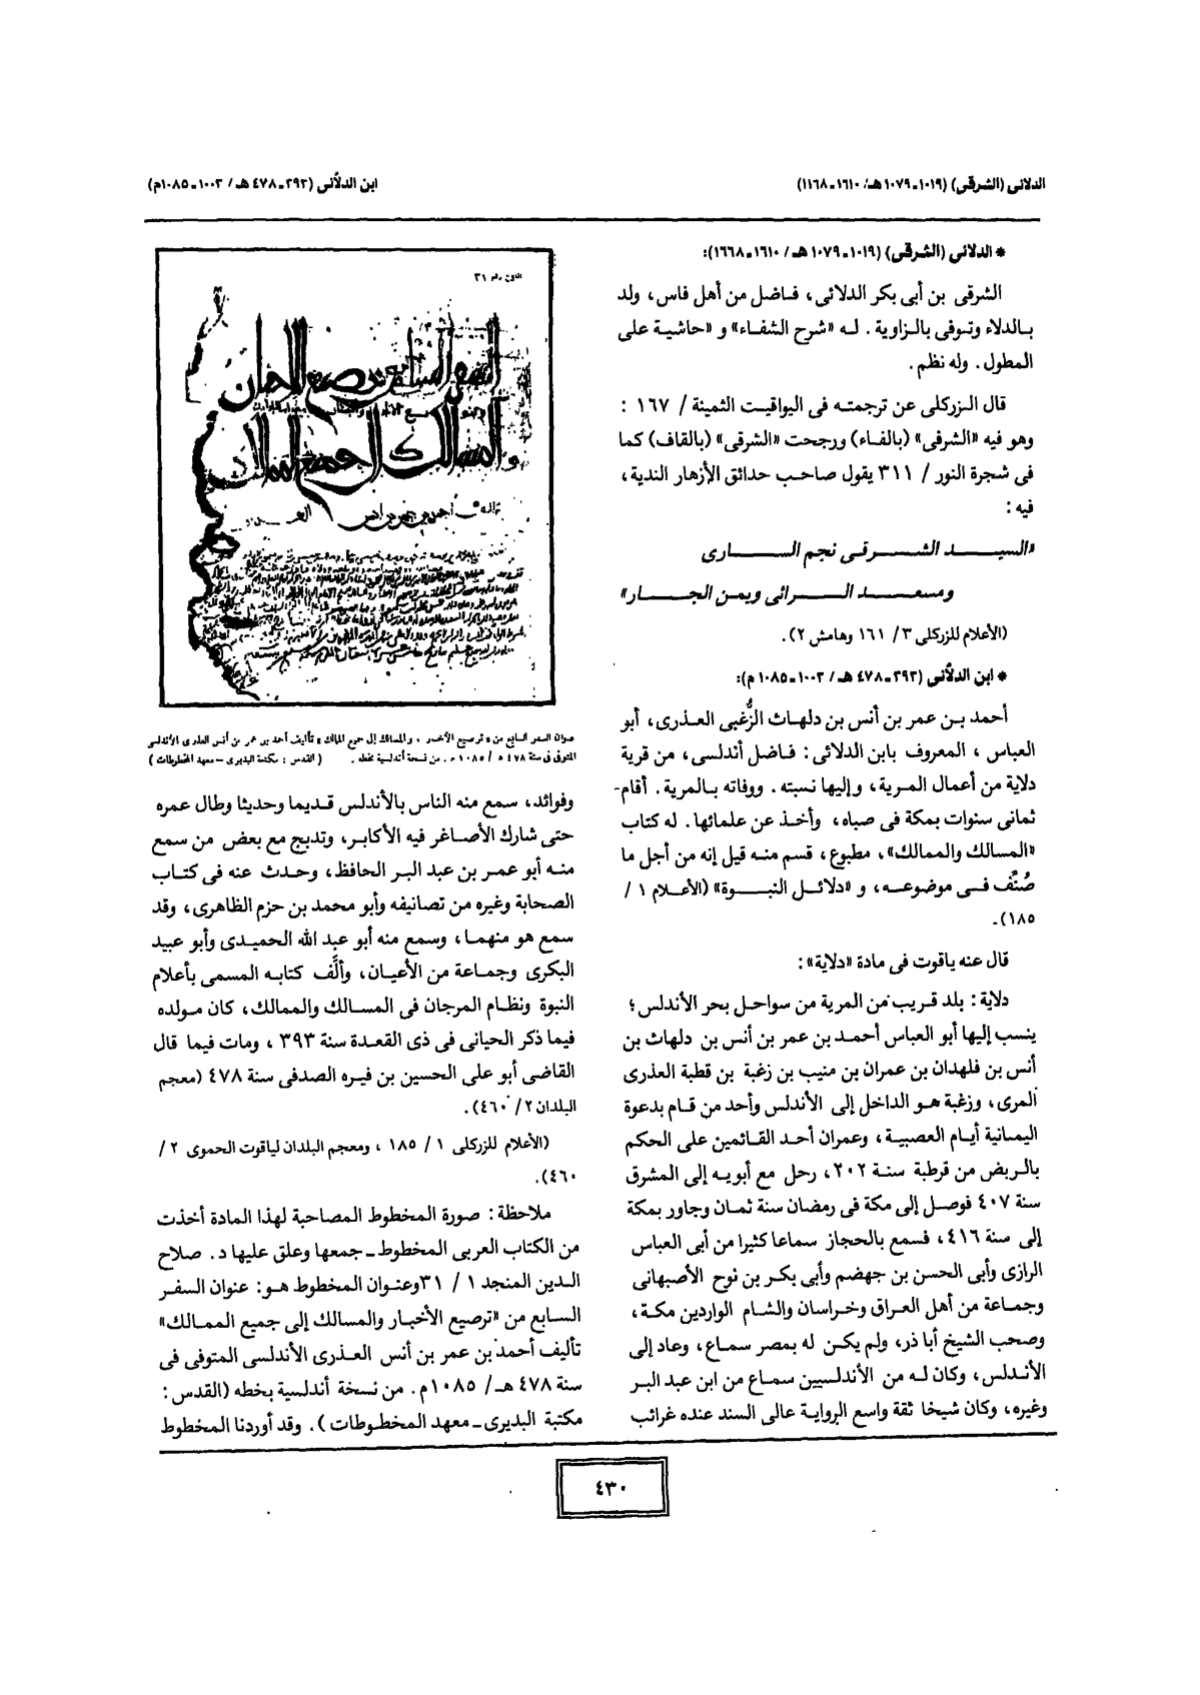 الدلائى (الشرقى) (١٠١٩ـ١٠٧٩هـ/ ١٦١٠ـ١١٦٨)
ابن الدلاّئى (٣٩٣ـ٤٧٨ هـ / ١٠٠٣ـ١٠٨٥م)
* الدلائى (الشرقى) (١٠١٩ـ١٠٧٩ هـ / ١٦١٠ـ١٦٦٨):
الشرقى بن أبى بكر الدلائى، فاضل من أهل فاس، ولد
بالدلاء وتوفى بالزاوية. له «شرح الشفاء» و «حاشية على
المطول. وله نظم.
قال الزركلى عن ترجمته فى اليواقيت الثمينة / ١٦٧ :
وهو فيه «الشرفى» (بالفاء) ورجحت «الشرقى» (بالقاف) كما
فى شجرة النور / ٣١١ يقول صاحب حدائق الأزهار الندية،
فيه:
«السيد الشرقى نجم السارى
ومسعد الرائى ويمن الجار»
(الأعلام للزركلى ٣/ ١٦١ وهامش ٢).
* ابن الدلاّئى (٣٩٣ـ٤٧٨ هـ / ١٠٠٣ـ١٠٨٥ م):
أحمد بن عمر بن أنس بن دلهاث الزُّغبى العذرى، أبو
العباس، المعروف بابن الدلائى: فاضل أندلسى، من قرية
دلاية من أعمال المرية، وإليها نسبته. ووفاته بالمرية. أقام
ثمانى سنوات بمكة فى صباه، وأخذ عن علمائها. له كتاب
«المسالك والممالك»، مطبوع، قسم منه قيل إنه من أجل ما
صُنِّف فى موضوعه، و «دلائل النبوة» (الأعلام ١ /
١٨٥).
قال عنه ياقوت فى مادة «دلاية»:
دلاية: بلد قريب من المرية من سواحل بحر الأندلس؛
ينسب إليها أبو العباس أحمد بن عمر بن أنس بن دلهاث بن
أنس بن فلهدان بن عمران بن منيب بن زغبة بن قطبة العذرى
المرى، وزغبة هو الداخل إلى الأندلس وأحد من قام بدعوة
اليمانية أيام العصبية، وعمران أحد القائمين على الحكم
بالربض من قرطبة سنة ٢٠٢، رحل مع أبويه إلى المشرق
سنة ٤٠٧ فوصل إلى مكة فى رمضان سنة ثمان وجاور بمكة
إلى سنة ٤١٦، فسمع بالحجاز سماعا كثيرا من أبى العباس
الرازى وأبى الحسن بن جهضم وأبى بكر بن نوح الأصبهانى
وجماعة من أهل العراق وخراسان والشام الواردين مكة،
وصحب الشيخ أبا ذر، ولم يكن له بمصر سماع، وعاد إلى
الأندلس، وكان له من الأندلسيين سماع من ابن عبد البر
وغيره، وكان شيخا ثقة واسع الرواية عالى السند عنده غرائب
عنوان السفر السابع من « ترصيع الأخبار، والمسالك إلى جميع الممالك » تأليف أحمد بن عمر بن أنس العذرى الأندلسى
المتوفى فى سنة ٤٧٨ هـ / ١٠٨٥ م. من نسخة أندلسية بخطه. ( القدس : مكتبة البديرى – معهد المخطوطات )
وفوائد، سمع منه الناس بالأندلس قديما وحديثا وطال عمره
حتى شارك الأصاغر فيه الأكابر، وتدبج مع بعض من سمع
منه أبو عمر بن عبد البر الحافظ، وحدث عنه فى كتاب
الصحابة وغيره من تصانيفه وأبو محمد بن حزم الظاهرى، وقد
سمع هو منهما، وسمع منه أبو عبد الله الحميدى وأبو عبيد
البكرى وجماعة من الأعيان، وألَّف كتابه المسمى بأعلام
النبوة ونظام المرجان فى المسالك والممالك، كان مولده
فيما ذكر الحيانى فى ذى القعدة سنة ٣٩٣ ، ومات فيما قال
القاضى أبو على الحسين بن فيره الصدفى سنة ٤٧٨ (معجم
البلدان ٢/ ٤٦٠).
(الأعلام للزركلى ١ / ١٨٥ ، ومعجم البلدان لياقوت الحموى ٢ /
٤٦٠).
ملاحظة: صورة المخطوط المصاحبة لهذا المادة أخذت
من الكتاب العربى المخطوط ـ جمعها وعلق عليها د. صلاح
الدين المنجد ١ / ٣١وعنوان المخطوط هو: عنوان السفر
السابع من «ترصيع الأخبار والمسالك إلى جميع الممالك»
تأليف أحمد بن عمر بن أنس العذرى الأندلسى المتوفى فى
سنة ٤٧٨ هـ/ ١٠٨٥م. من نسخة أندلسية بخطه (القدس:
مكتبة البديرى ـ معهد المخطوطات ). وقد أوردنا المخطوط
٤٣٠